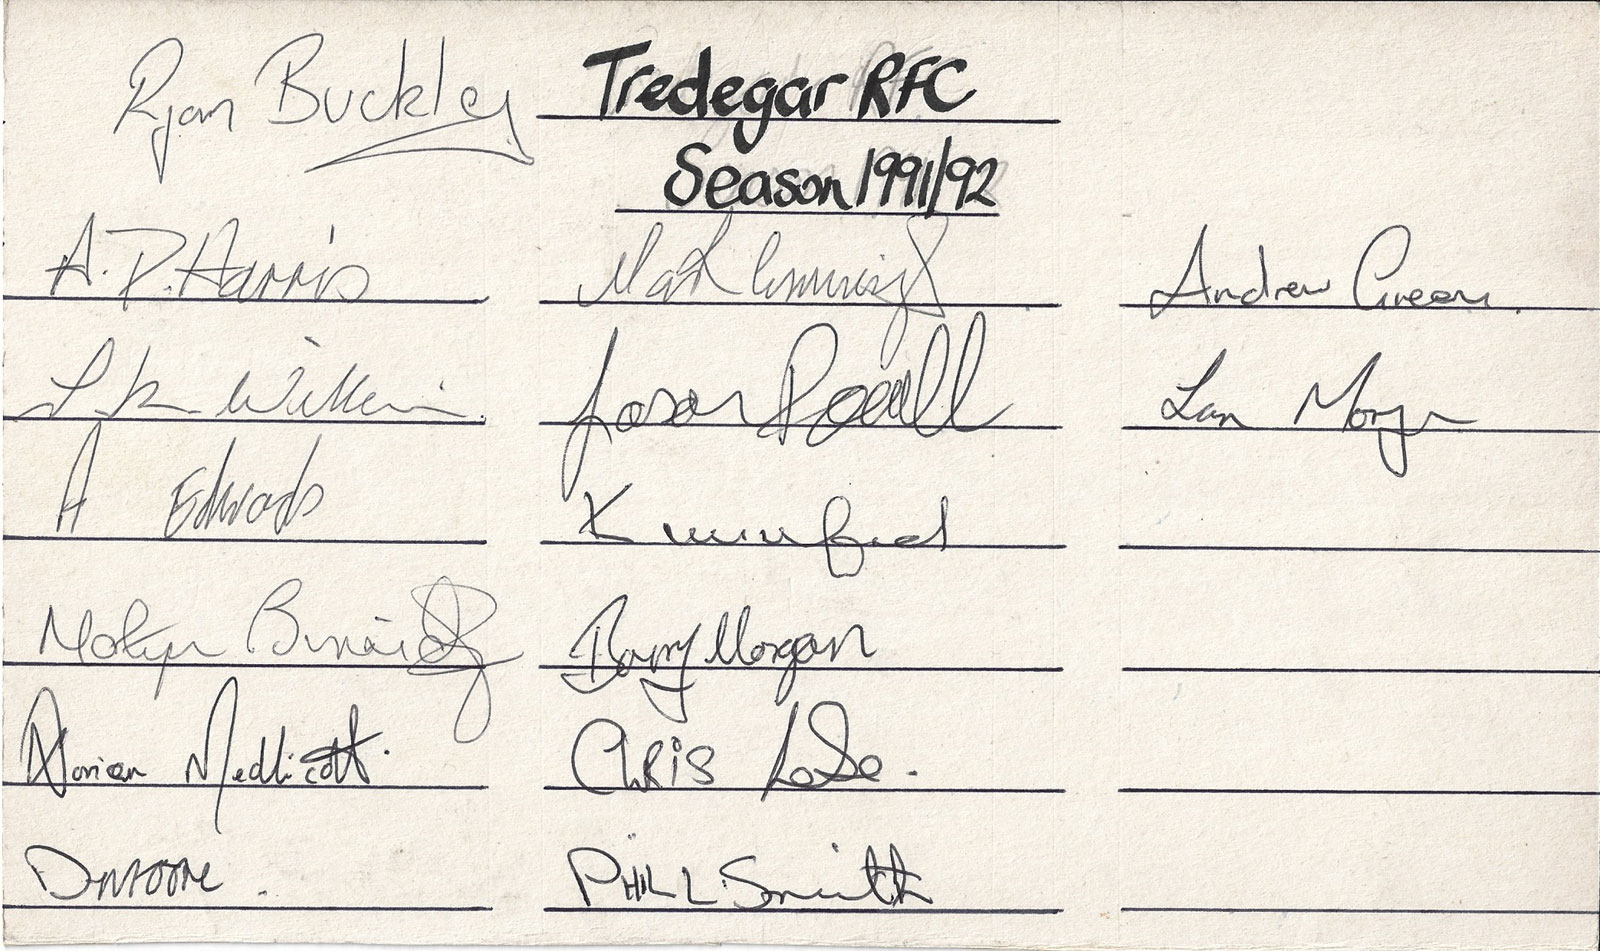 Ryan Buckley
Tredegar RFC
Season 1991/92
A.D. Harris
Mark
Andrew Green
Jason Powell
Ian Morgan
A Edwards
K
Barry Morgan
Medlicott.
Chris
D Moore
Phill Smith